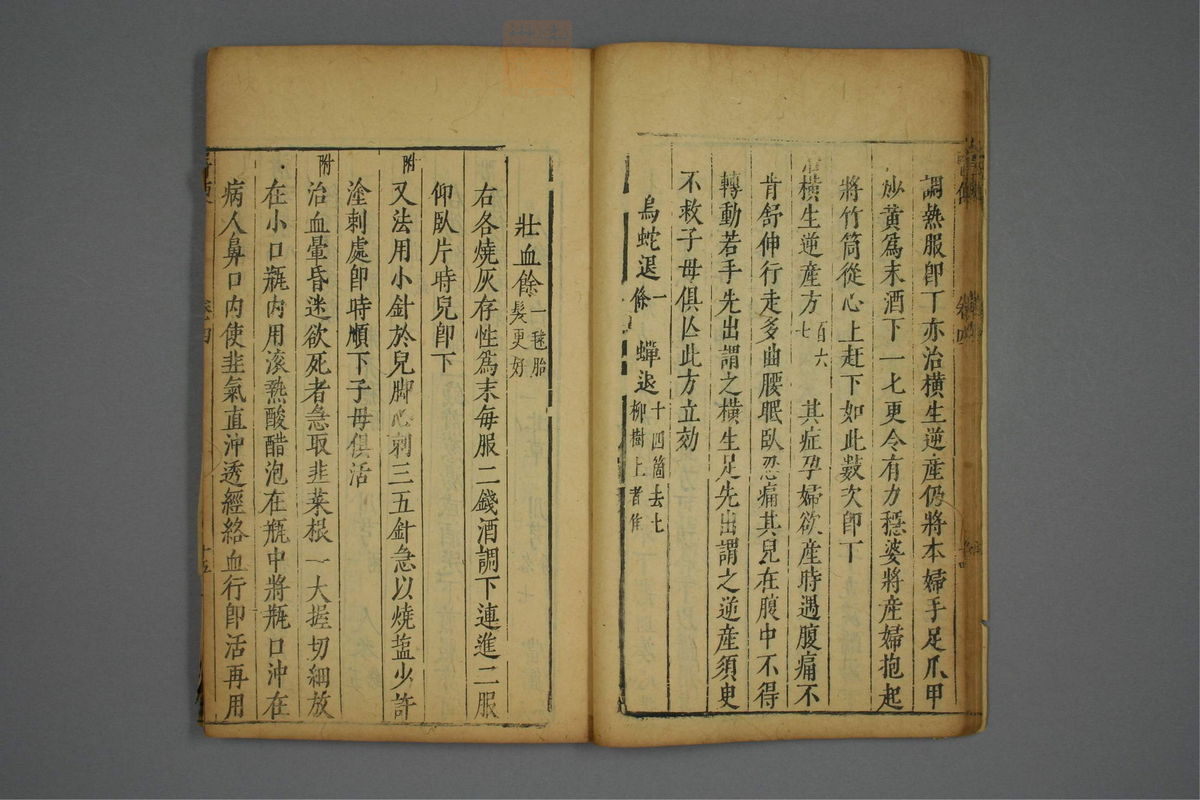 調熱服卽丁亦治橫生逆產仍將本婦手足爪甲
炒黃爲末酒下一七更令有力穩婆將產婦抱起
將竹筒從心上赶下如此數次卽丁
治橫生逆產方百六七 其症孕婦欲產時遇腹痛不
肯舒伸行走多曲腰眠臥忍痛其兒在腹中不得
轉動若手先出謂之橫生足先出謂之逆產須臾
不救子母俱亾此方立効
烏蛇退一條 蟬退十四箇去七柳樹上者隹
壯血餘一毬胎髮更好
右各燒灰存性爲末每服二錢酒調下連進二服
仰臥片時兒卽下
附 又法用小針於兒脚心刺三五針急以燒塩少許
塗刺處卽時順下子母俱活
附 治血暈昏迷欲死者急取韭菜根一大握切細放
在小口甁內用滚熱酸醋泡在甁中將甁口沖在
病人鼻口內使韭氣直沖透經絡血行卽活再用
卷四
十五